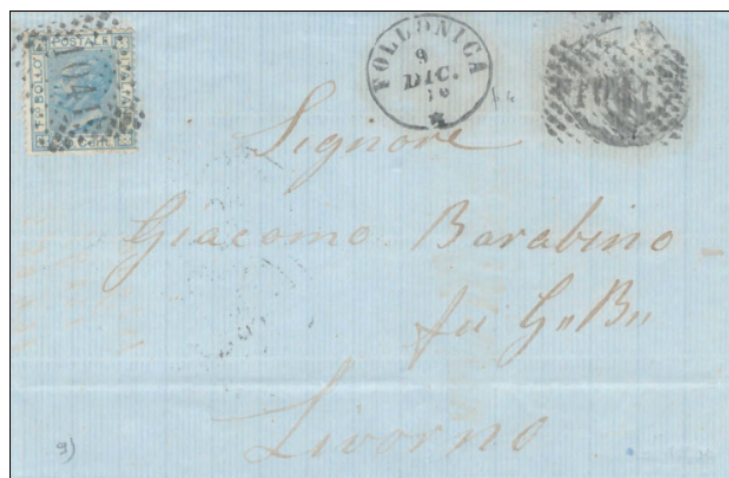 POSTALE
FOLLONICA
9
DIC.
Signore
Giacomo Barabino
fu G„B„
Livorno
9)